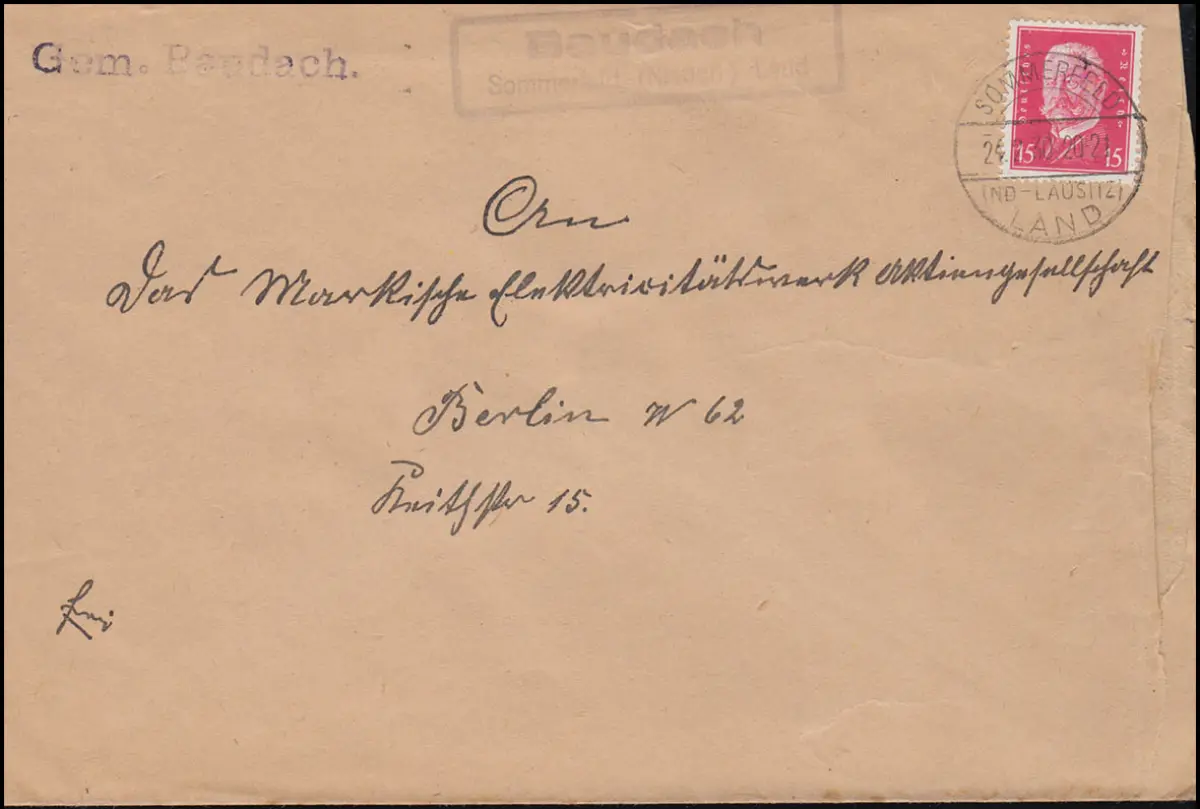 Gem. Baudach.
Baudach
Sommerfeld (Nieder) Land
Deutsches Reich
15 15
SOMMERFELD
30.20-21
(ND-LAUSITZ)
LAND
An
Das Markische Elektricitätswerk Aktiengesellschaft
Berlin W 62
Keithstr 15.
frei